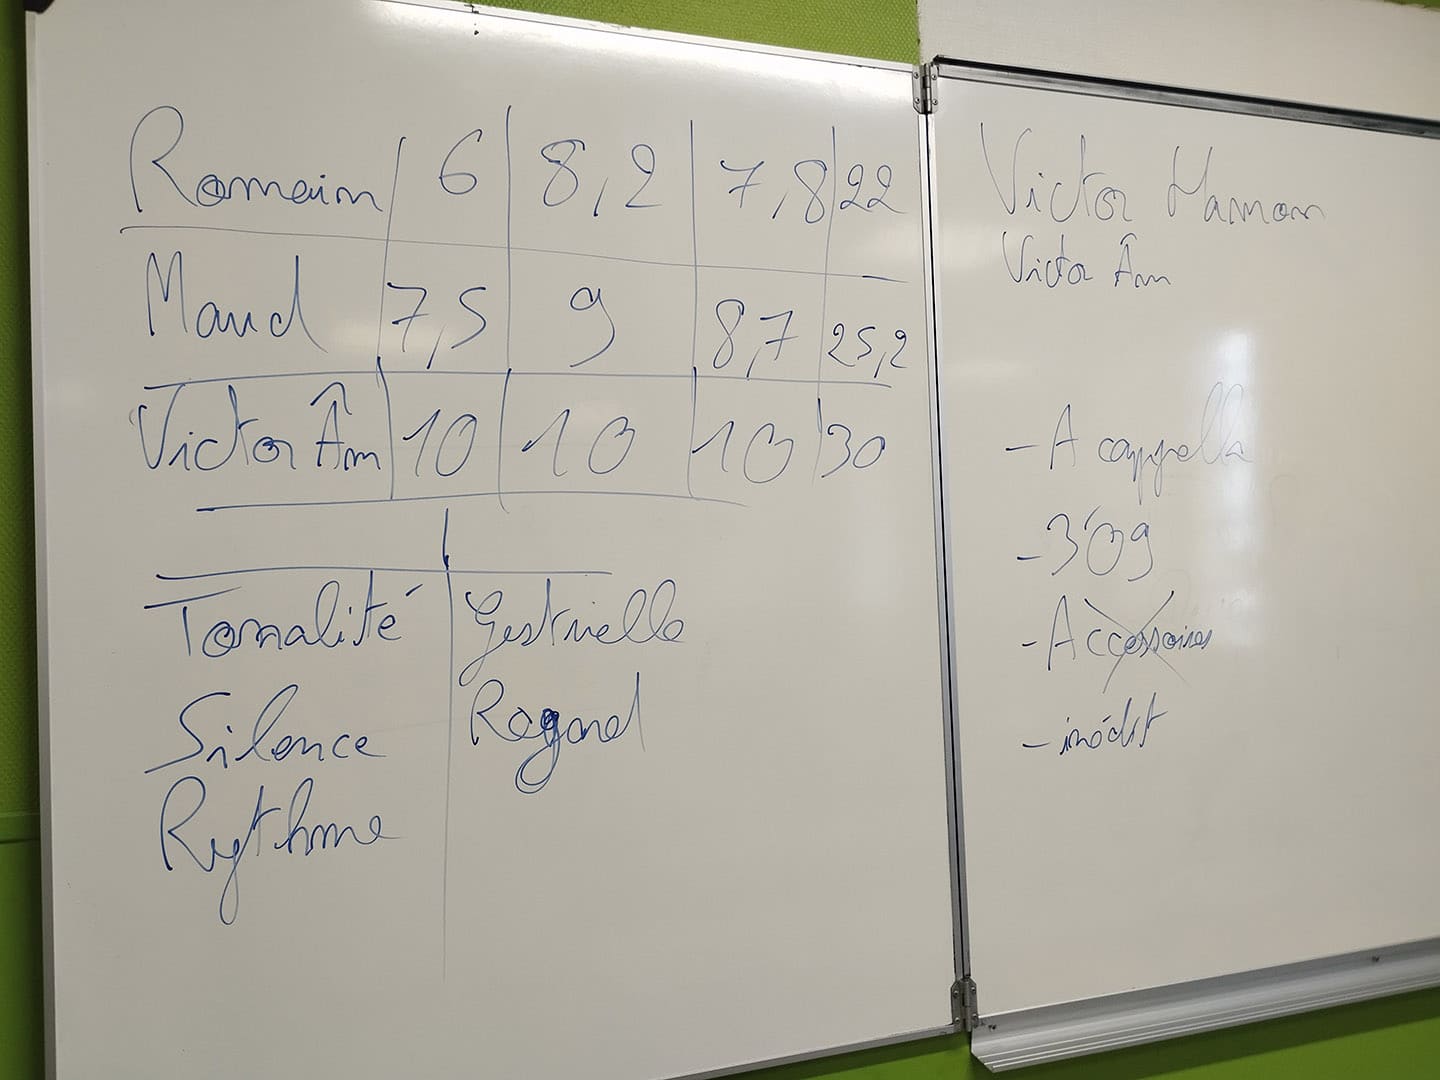 Romain 6 8,2 7,8 22
Maud 7,5 9 8,7 25,2
Victor Âm 10 10 10 30
Tonalité Gestuelle
Silence Regard
Rythme
Victor Hannon
Victor Âm
- A cappella
- 3'09
- Accessoires
- inédit